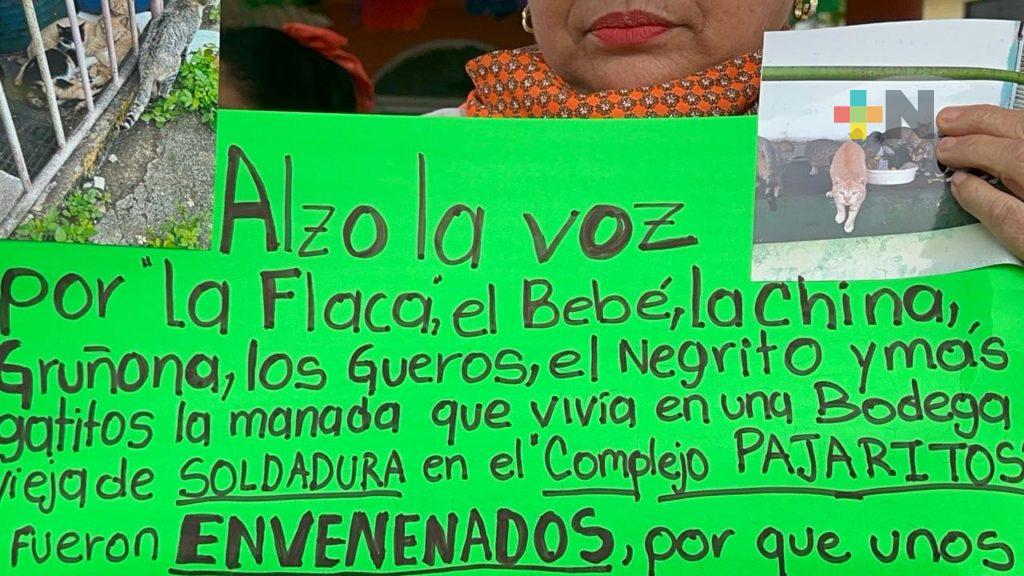 +N
Alzo la voz
por "la Flaca", el Bebé, la China,
Gruñona, los Gueros, el Negrito y más
gatitos la manada que vivía en una Bodega
vieja de SOLDADURA en el "Complejo PAJARITOS
fueron ENVENENADOS, por que unos